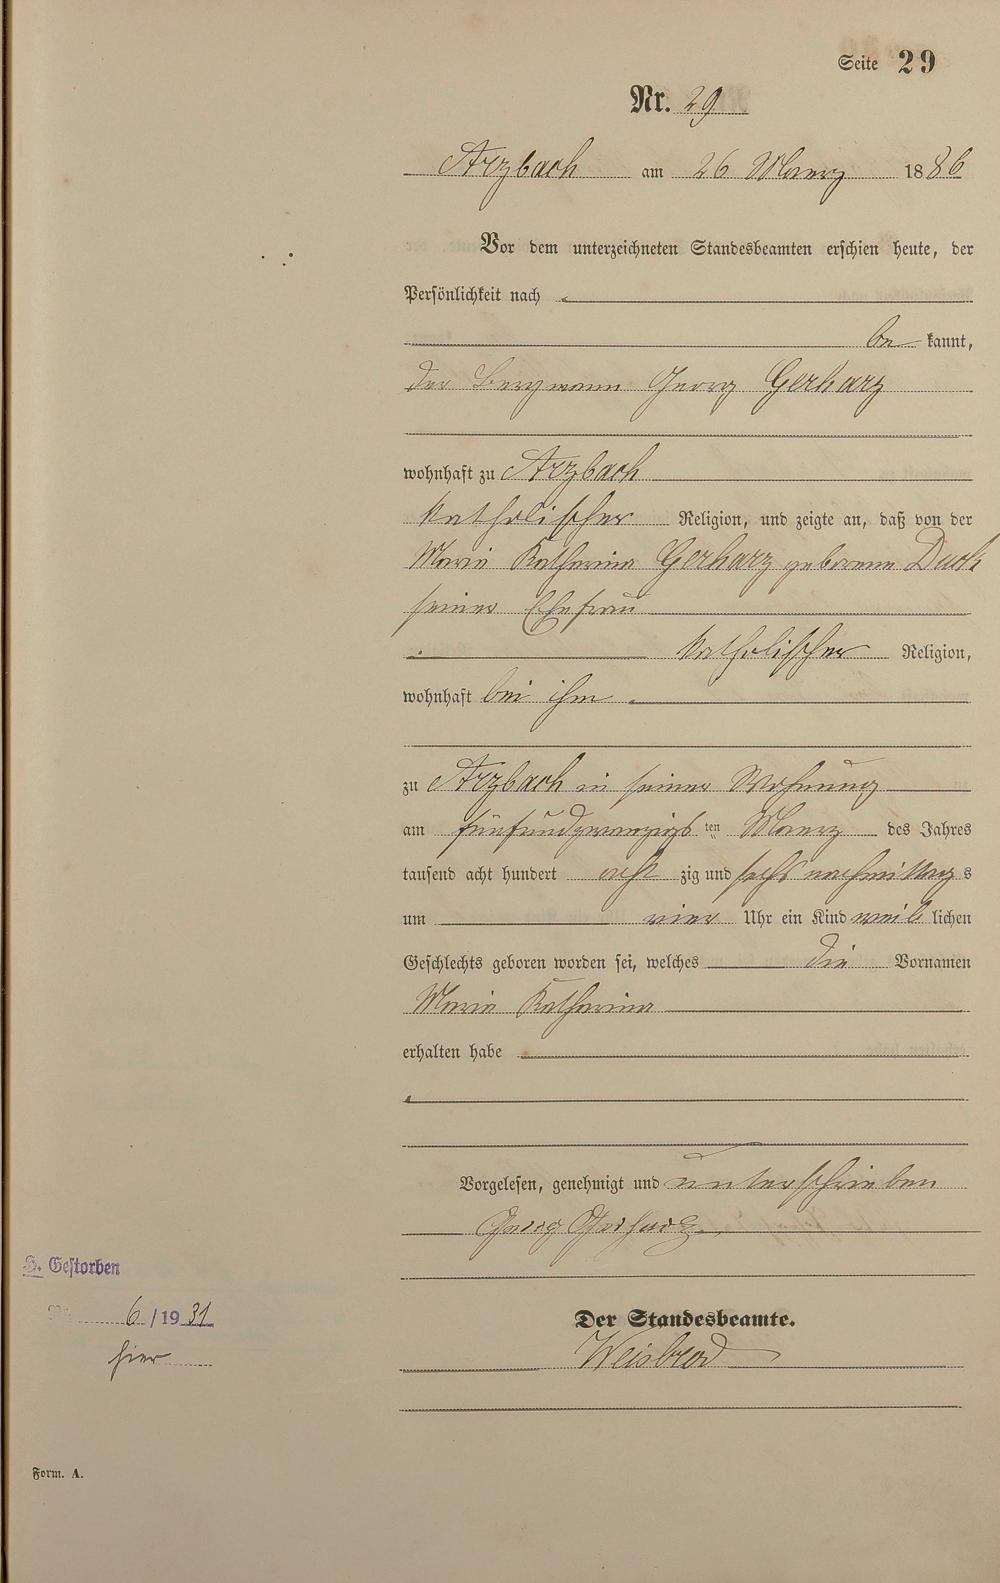 Seite 29
Nr. 29
Arzbach am 26 Maerz 1886
Vor dem unterzeichneten Standesbeamten erschien heute, der
Persönlichkeit nach
be kannt,
der Bergmann Georg Gerharz
wohnhaft zu Arzbach
katholischer Religion, und zeigte an, daß von der
Maria Katharina Gerharz geborene Duck
seiner Ehefrau
katholischer Religion,
wohnhaft bei ihm
zu Arzbach in seiner Wohnung
am fünfundzwanzigs ten Maerz des Jahres
tausend acht hundert acht zig und sechs nachmittag s
um vier Uhr ein Kind weib lichen
Geschlechts geboren worden sei, welches die Vornamen
Maria Katharina
erhalten habe
Vorgelesen, genehmigt und unterschrieben
Georg Gerharz
H. Gestorben
Nr. 6/1931
hier
Der Standesbeamte.
Weisbrod
Form. A.